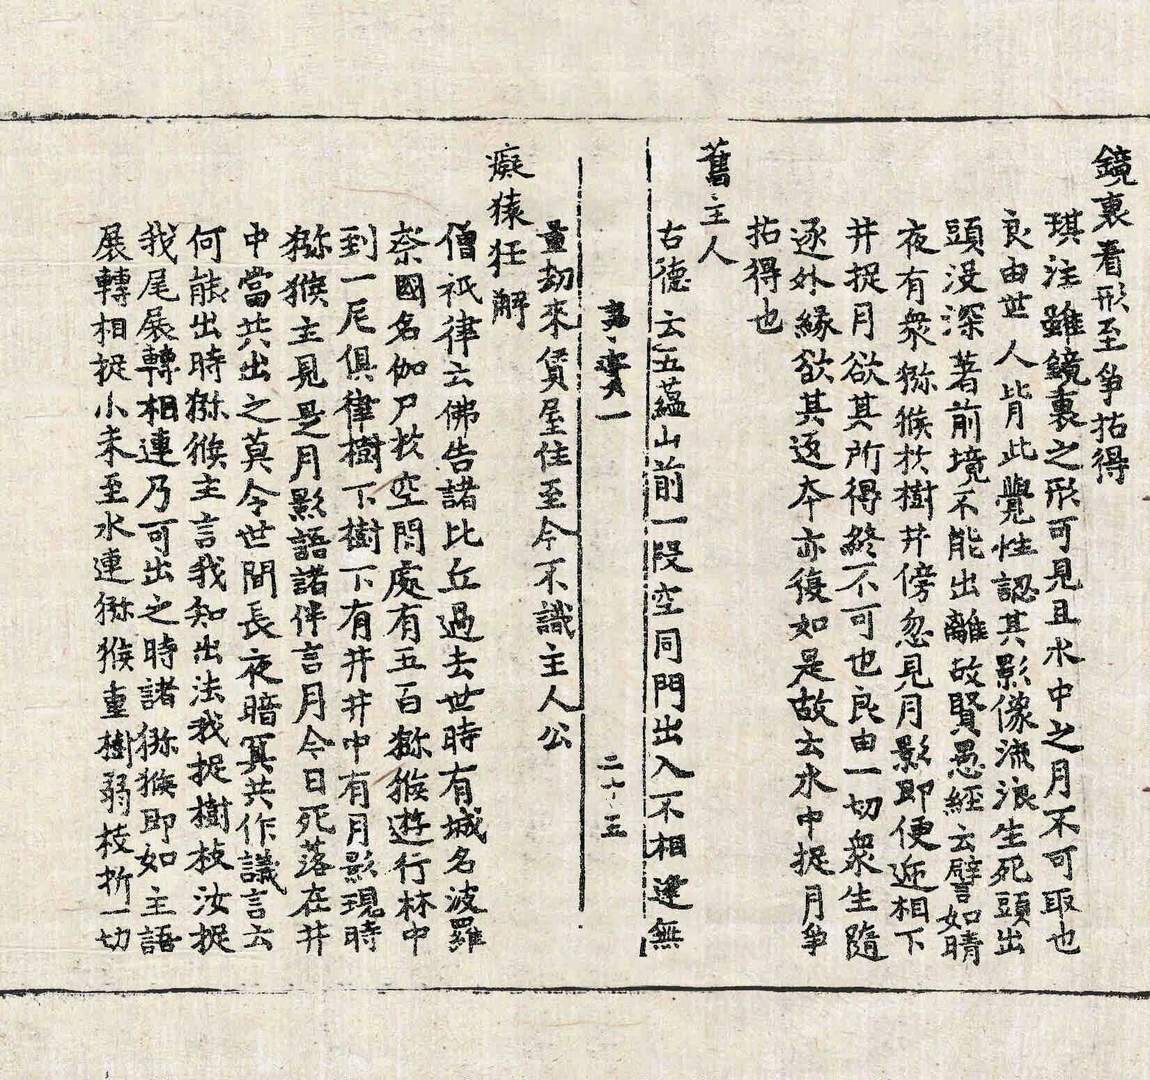 鏡裏看形至爭拈得
琪注雖鏡裏之形可見且水中之月不可取也
良由世人背此覺性認其影像流浪生死頭出
頭没深著前境不能出離故賢愚經云譬如晴
夜有衆猕猴於樹井傍忽見月影即便𨒬相下
井捉月欲其所得終不可也良由一切衆生隨
逐外緣欲其返本亦復如是故云水中捉月爭
拈得也
舊主人
古德云五蘊山前一段空同門出入不相逢無
二十五
量劫來賃屋住至今不識主人公
癡猿狂解
僧祇律云佛告諸比丘過去世時有城名波羅
柰國名伽尸於空閑處有五百猕猴遊行林中
到一尼俱律樹下樹下有井井中有月影現時
猕猴主見是月影語諸伴言月今日死落在井
中當共出之莫令世間長夜暗冥共作議言云
何能出時猕猴主言我知出法我捉樹枝汝捉
我尾展轉相連乃可出之時諸猕猴即如主語
展轉相捉小未至水連猕猴重樹弱枝折一切